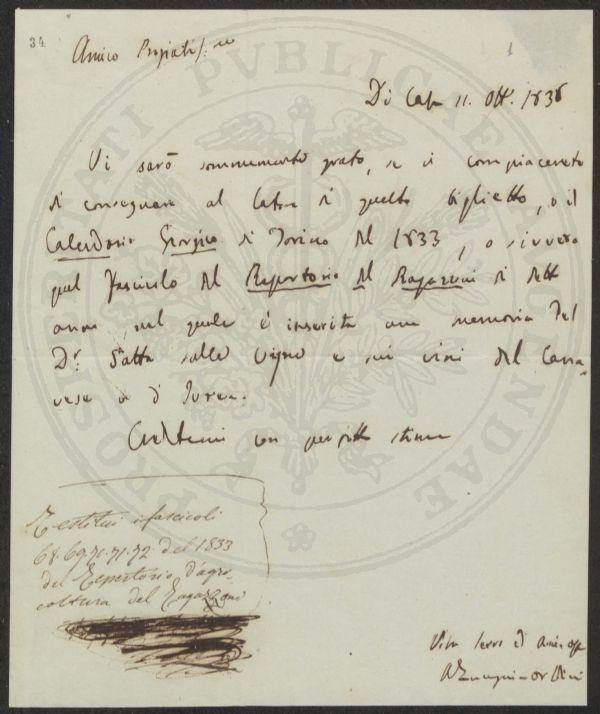 34
1
Amico Pregiatis.mo
Di Casa 11. Ott. 1838
Vi sarò sommamente grato, se vi compiacerete
di consegnare al lator di questo biglietto, o il
Calendario Georgico di Torino del 1833, o sivvero
quel Fascicolo del Repertorio del Ragazzoni di dett
anno, nel quale è inserita una memoria del
Dr. Gatta sulle vigne e sui vini del Cana=
vese e d'Ivrea.
Credetemi con perfetta stima
Restitui i fascicoli
68. 69. 70. 71. 72 del 1833
del Repertorio d'agri-
coltura del Ragazzoni
Vostro Serv. ed Amico
Zuccagni-Orlandini
PROSPERITATI PUBLICAE AUGENDAE